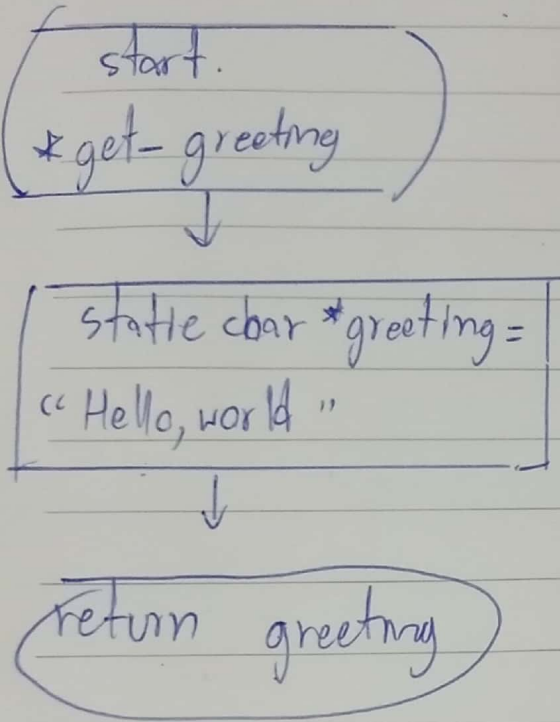 start.
*get- greeting
static char *greeting=
"Hello, world"
return greeting